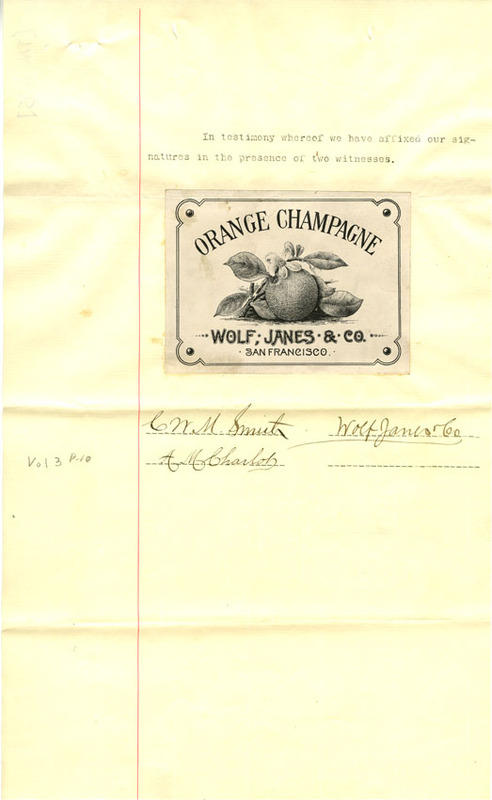 In testimony whereof we have affixed our sig-
natures in the presence of two witnesses.
ORANGE CHAMPAGNE
WOLF, JANES & CO.
SAN FRANCISCO.
C W. M. Smith Wolf Janes & Co
A M Charlot
Vol 3 P-10